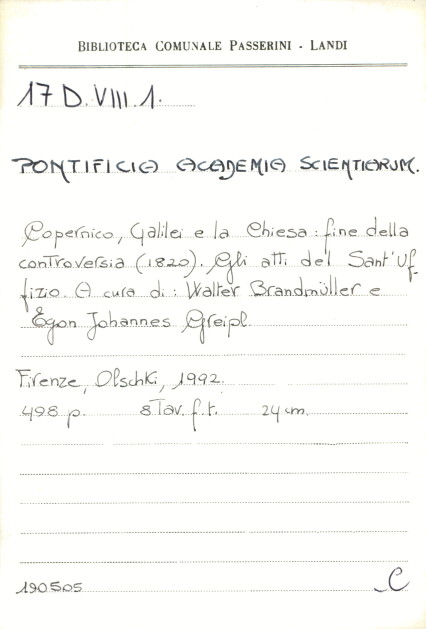 BIBLIOTECA COMUNALE PASSERINI - LANDI
17 D. VIII. 1.
PONTIFICIA ACADEMIA SCIENTIARUM.
Copernico, Galilei e la Chiesa : fine della
controversia (1820). Gli atti del Sant'Uf-
fizio. A cura di : Walter Brandmüller e
Egon Johannes Greipl.
Firenze, Olschki, 1992.
498 p. 8 Tav. f.t. 24 cm.
190505 C